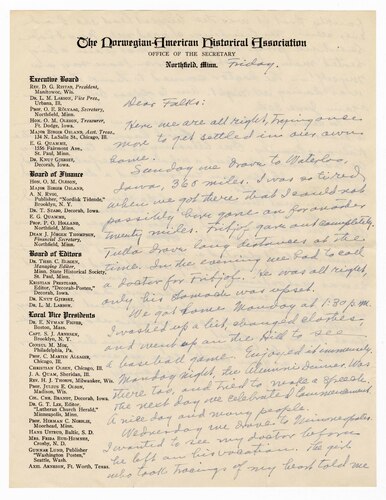 The Norwegian-American Historical Association
OFFICE OF THE SECRETARY
Northfield, Minn. Friday.
Executive Board
REV. D. G. RISTAD, President,
Manitowoc, Wis.
DR. L. M. LARSON, Vice Pres.,
Urbana, Ill.
PROF. O. E. RÖLVAAG, Secretary,
Northfield, Minn.
HON. O. M. OLESON, Treasurer,
Ft. Dodge, Iowa.
MAJOR BIRGER OSLAND, Asst. Treas.,
134 N. LaSalle St., Chicago, Ill.
E. G. QUAMME,
1556 Fairmont Ave.,
St. Paul, Minn.
DR. KNUT GJERSET,
Decorah, Iowa.
Board of Finance
HON. O. M. OLESON,
MAJOR BIRGER OSLAND,
A. N. RYGG,
Publisher, "Nordisk Tidende,"
Brooklyn, N. Y.
DR. T. STABO, Decorah, Iowa.
E. G. QUAMME,
St. Paul, Minn.
PROF. P. O. HOLLAND,
Northfield, Minn.
DEAN J. JÖRGEN THOMPSON,
Financial Secretary,
Northfield, Minn.
Board of Editors
DR. THEO. C. BLEGEN,
Managing Editor,
Minn. State Historical Society,
St. Paul, Minn.
KRISTIAN PRESTGARD,
Editor, "Decorah-Posten,"
Decorah, Iowa.
DR. KNUT GJERSET,
DR. L. M. LARSON.
Local Vice Presidents
Boston, Mass.
CAPT. S. J. ARNESEN,
Brooklyn, N. Y.
CONSUL M. MOE,
Philadelphia, Pa.
Chicago, Ill.
CHRISTIAN OLSEN, Chicago, Ill.
J. A. QUAM, Sheridan, Ill.
REV. H. J. THORPE, Milwaukee, Wis.
PROF. JULIUS E. OLSON,
Madison, Wis.
COL. CHR. BRANDT, Decorah, Iowa.
DR. G. T. LEE, Editor,
"Lutheran Church Herald,"
Minneapolis, Minn.
Moorhead, Minn.
HANS USTRUD, Baltic, S. D.
Crosby, N. D.
GUNNAR LUND, Publisher
"Washington Posten,"
Seattle, Wash.
AXEL ARNESON, Ft. Worth, Texas.
Dear Folks:
Here we are all right, trying once
more to get settled in our own
home.
Sunday we drove to Waterloo,
Iowa, 360 miles. I was so tired
when we got there that I could not
possibly have gone on for another
twenty miles. Fritjof gave out completely.
Tulla drove long distances at the
time. In the evening we had to call
a doctor for Fritjof. He was all right,
only his stomack was upset.
We got home Monday at 1:30 p.m.
I washed up a bit, changed clothes,
and went up on the Hill to see
a base ball game. Enjoyed it immensely.
Monday night, the Alumni Dinner. Was
there too, and tried to make a speech.
The next day we celebrated Commencement
A nice day and many people.
Wednesday we drove to Minneapolis.
I wanted to see my doctor before
he left on his vacation. The girl
who took tracings of my heart told me